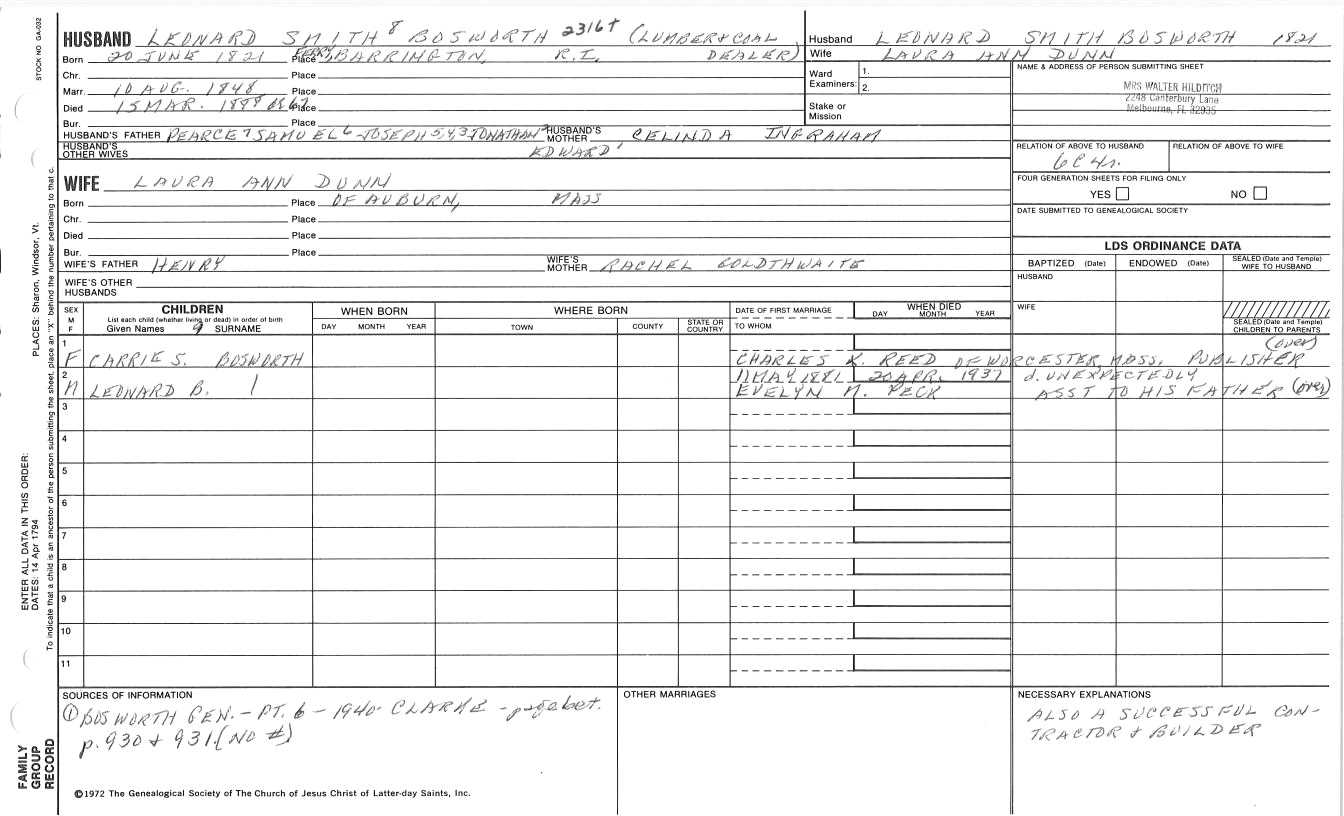 HUSBAND LEONARD SMITH 8 BOSWORTH 2316+ (LUMBER & COAL DEALER)
Born 20 JUNE 1821 Place BARRINGTON, R.I.
Chr. Place
Marr. 10 AUG. 1848 Place
Died 15 MAR. Place
Bur. Place
HUSBAND'S FATHER PEARCE 7 SAMUEL 6 JOSEPH 5,4,3 JONATHAN 2 EDWARD 1 HUSBAND'S MOTHER CELINDA INGRAHAM
HUSBAND'S OTHER WIVES
WIFE LAURA ANN DUNN
Born Place OF AUBURN, MASS
Chr. Place
Died Place
Bur. Place
WIFE'S FATHER HENRY WIFE'S MOTHER RACHEL GOLDTHWAITE
WIFE'S OTHER HUSBANDS
Husband LEONARD SMITH BOSWORTH 1821
Wife LAURA ANN DUNN
Ward Examiners: 1. 2.
Stake or Mission
NAME & ADDRESS OF PERSON SUBMITTING SHEET
MRS WALTER HILDITCH
2248 Canterbury Lane
Melbourne, FL 32935
RELATION OF ABOVE TO HUSBAND RELATION OF ABOVE TO WIFE
6C4r.
FOUR GENERATION SHEETS FOR FILING ONLY
YES NO
DATE SUBMITTED TO GENEALOGICAL SOCIETY
LDS ORDINANCE DATA
BAPTIZED (Date) ENDOWED (Date) SEALED (Date and Temple) WIFE TO HUSBAND
HUSBAND
WIFE
SEALED (Date and Temple) CHILDREN TO PARENTS
SEX M F CHILDREN WHEN BORN WHERE BORN DATE OF FIRST MARRIAGE WHEN DIED
List each child (whether living or dead) in order of birth
Given Names 9 SURNAME DAY MONTH YEAR TOWN COUNTY STATE OR COUNTRY TO WHOM DAY MONTH YEAR
1 (over)
F CARRIE S. BOSWORTH CHARLES K. REED OF WORCESTER, MASS. PUBLISHER
2. 11 MAY 1881 20 APR. 1937 d. UNEXPECTEDLY
M LEONARD B. EVELYN M. PECK ASST TO HIS FATHER (over)
3
4
5
6
7
8
9
10
11
SOURCES OF INFORMATION
① BOSWORTH GEN. - PT. 6 - 1940 CLARKE - page bet.
p. 930 & 931. (NO #)
OTHER MARRIAGES
NECESSARY EXPLANATIONS
ALSO A SUCCESSFUL CON-
TRACTOR & BUILDER
©1972 The Genealogical Society of The Church of Jesus Christ of Latter-day Saints, Inc.
STOCK NO GA-032
PLACES: Sharon, Windsor, Vt.
ENTER ALL DATA IN THIS ORDER:
DATES: 14 Apr 1794
To indicate that a child is an ancestor of the person submitting the sheet, place an "X" behind the number pertaining to that c.
FAMILY
GROUP
RECORD